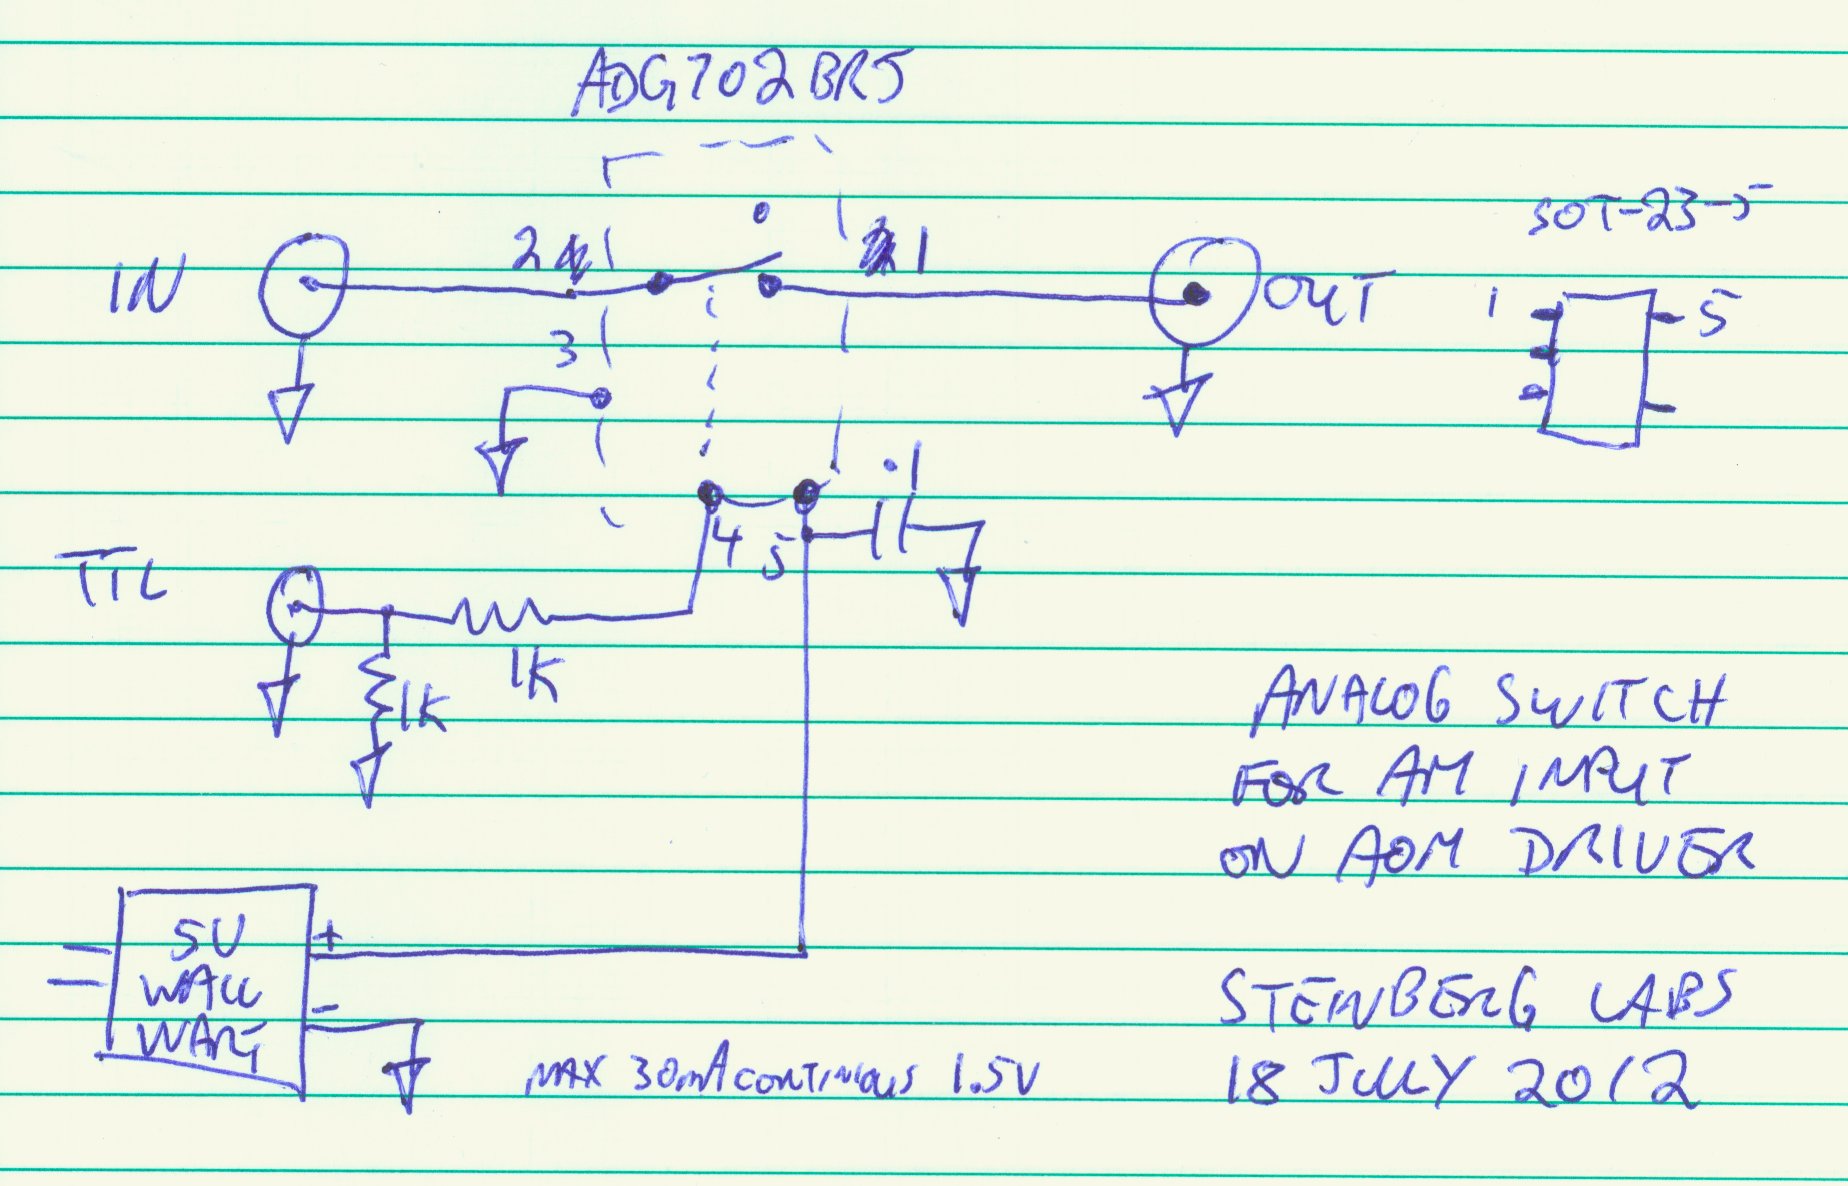 ADG702BRJ
SOT-23-5
IN
2
1
OUT
1
5
3
.1
4
5
TTL
1K
1K
ANALOG SWITCH
FOR AM INPUT
ON AOM DRIVER
5V
WALL
WART
+
-
MAX 30mA CONTINUOUS 1.5V
STEINBERG LABS
18 JULY 2012